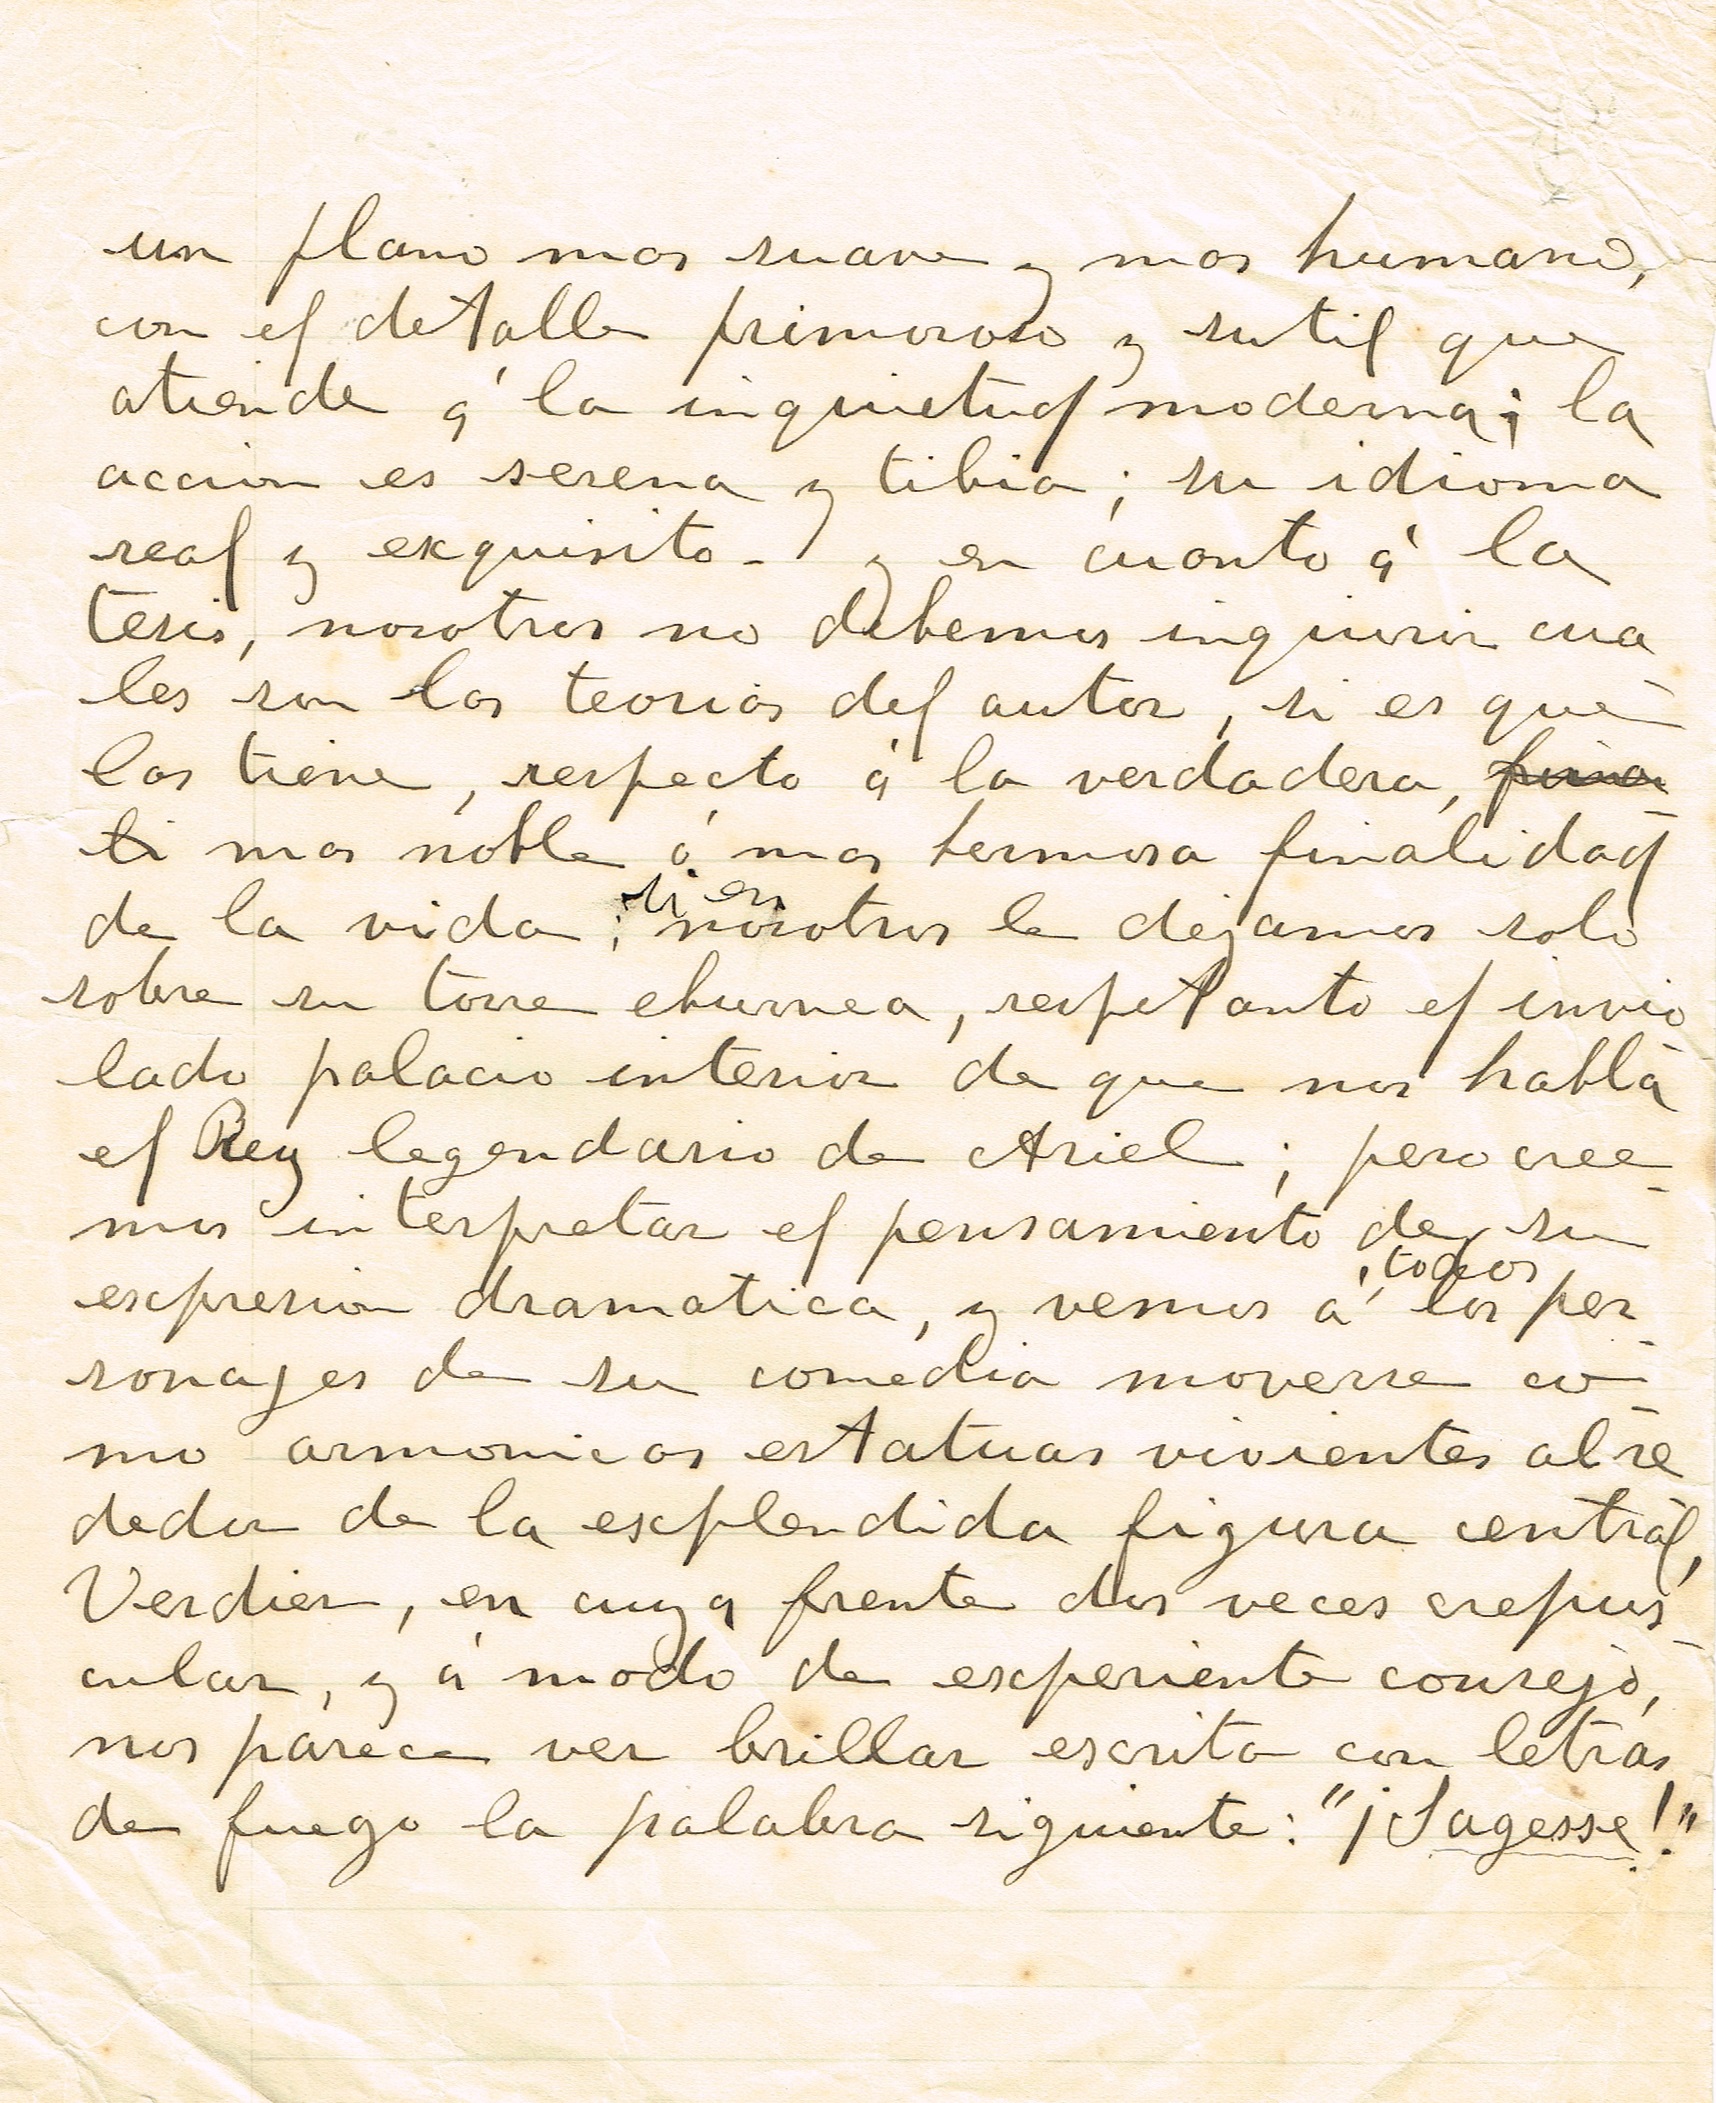 un plano mas suave y mas humano,
con el detalle primoroso y sutil que
atiende á la inquietud moderna; la
accion es serena y tibia; su idioma
real y exquisito - y en cuanto á la
tesis, nosotros no debemos inquirir cua
les son las teorias del autor, si es que
las tiene, respecto á la verdadera,
mas noble ó mas hermosa finalidad
de la vida; si en
nosotros le dejamos solo
sobre su torre eburnea, respetanto el invio
lado palacio interior de que nos habla
el Rey legendario de Ariel; pero cree-
mos interpretar el pensamiento de su
expresion dramatica, y vemos á todos los per
sonajes de su comedia moverse co-
mo armonicas estatuas vivientes alre
dedor de la explendida figura central,
Verdier, en cuya frente dos veces crepus-
cular, y á modo de experiente consejo,
nos parece ver brillar escrita con letras
de fuego la palabra siguiente: "¡Sagesse!"